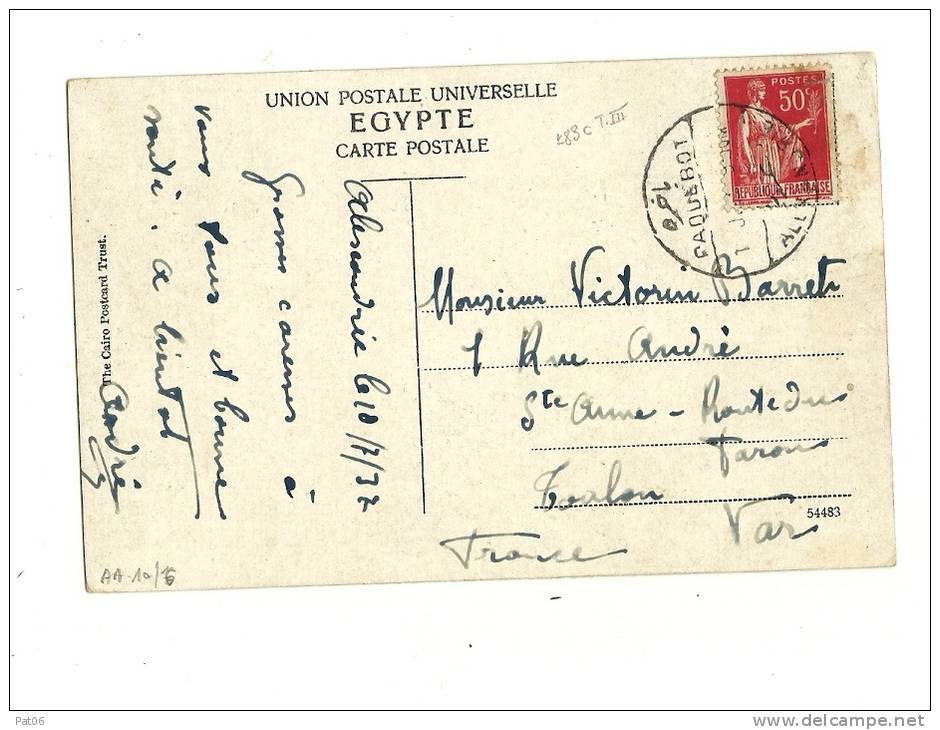 UNION POSTALE UNIVERSELLE
EGYPTE
CARTE POSTALE
283c T.III
POSTES
50c
REPUBLIQUE FRANCAISE
PAQUEBOT
Alexandrie le 10/7/37
Grosses caresses à
vous tous et bonne
santé. a bientot
André
The Cairo Postcard Trust.
Monsieur Victorin Barret
1 Rue André
Ste Anne - Route du
Faron
Toulon
Var
France
54483
AA-10/
Pat06
www.delcampe.net